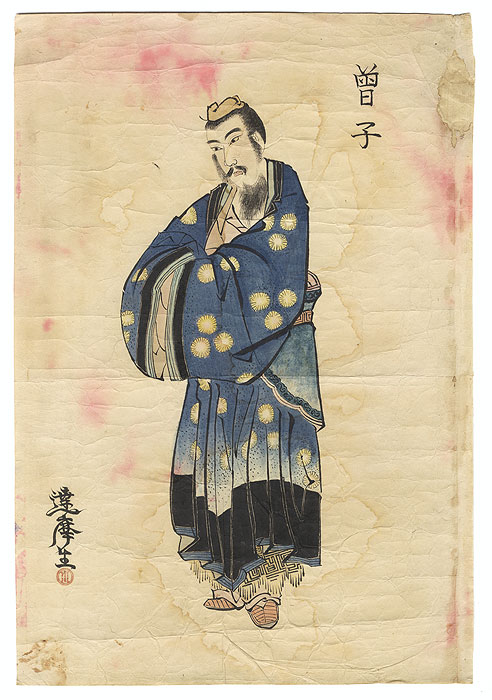 曾子
達摩生